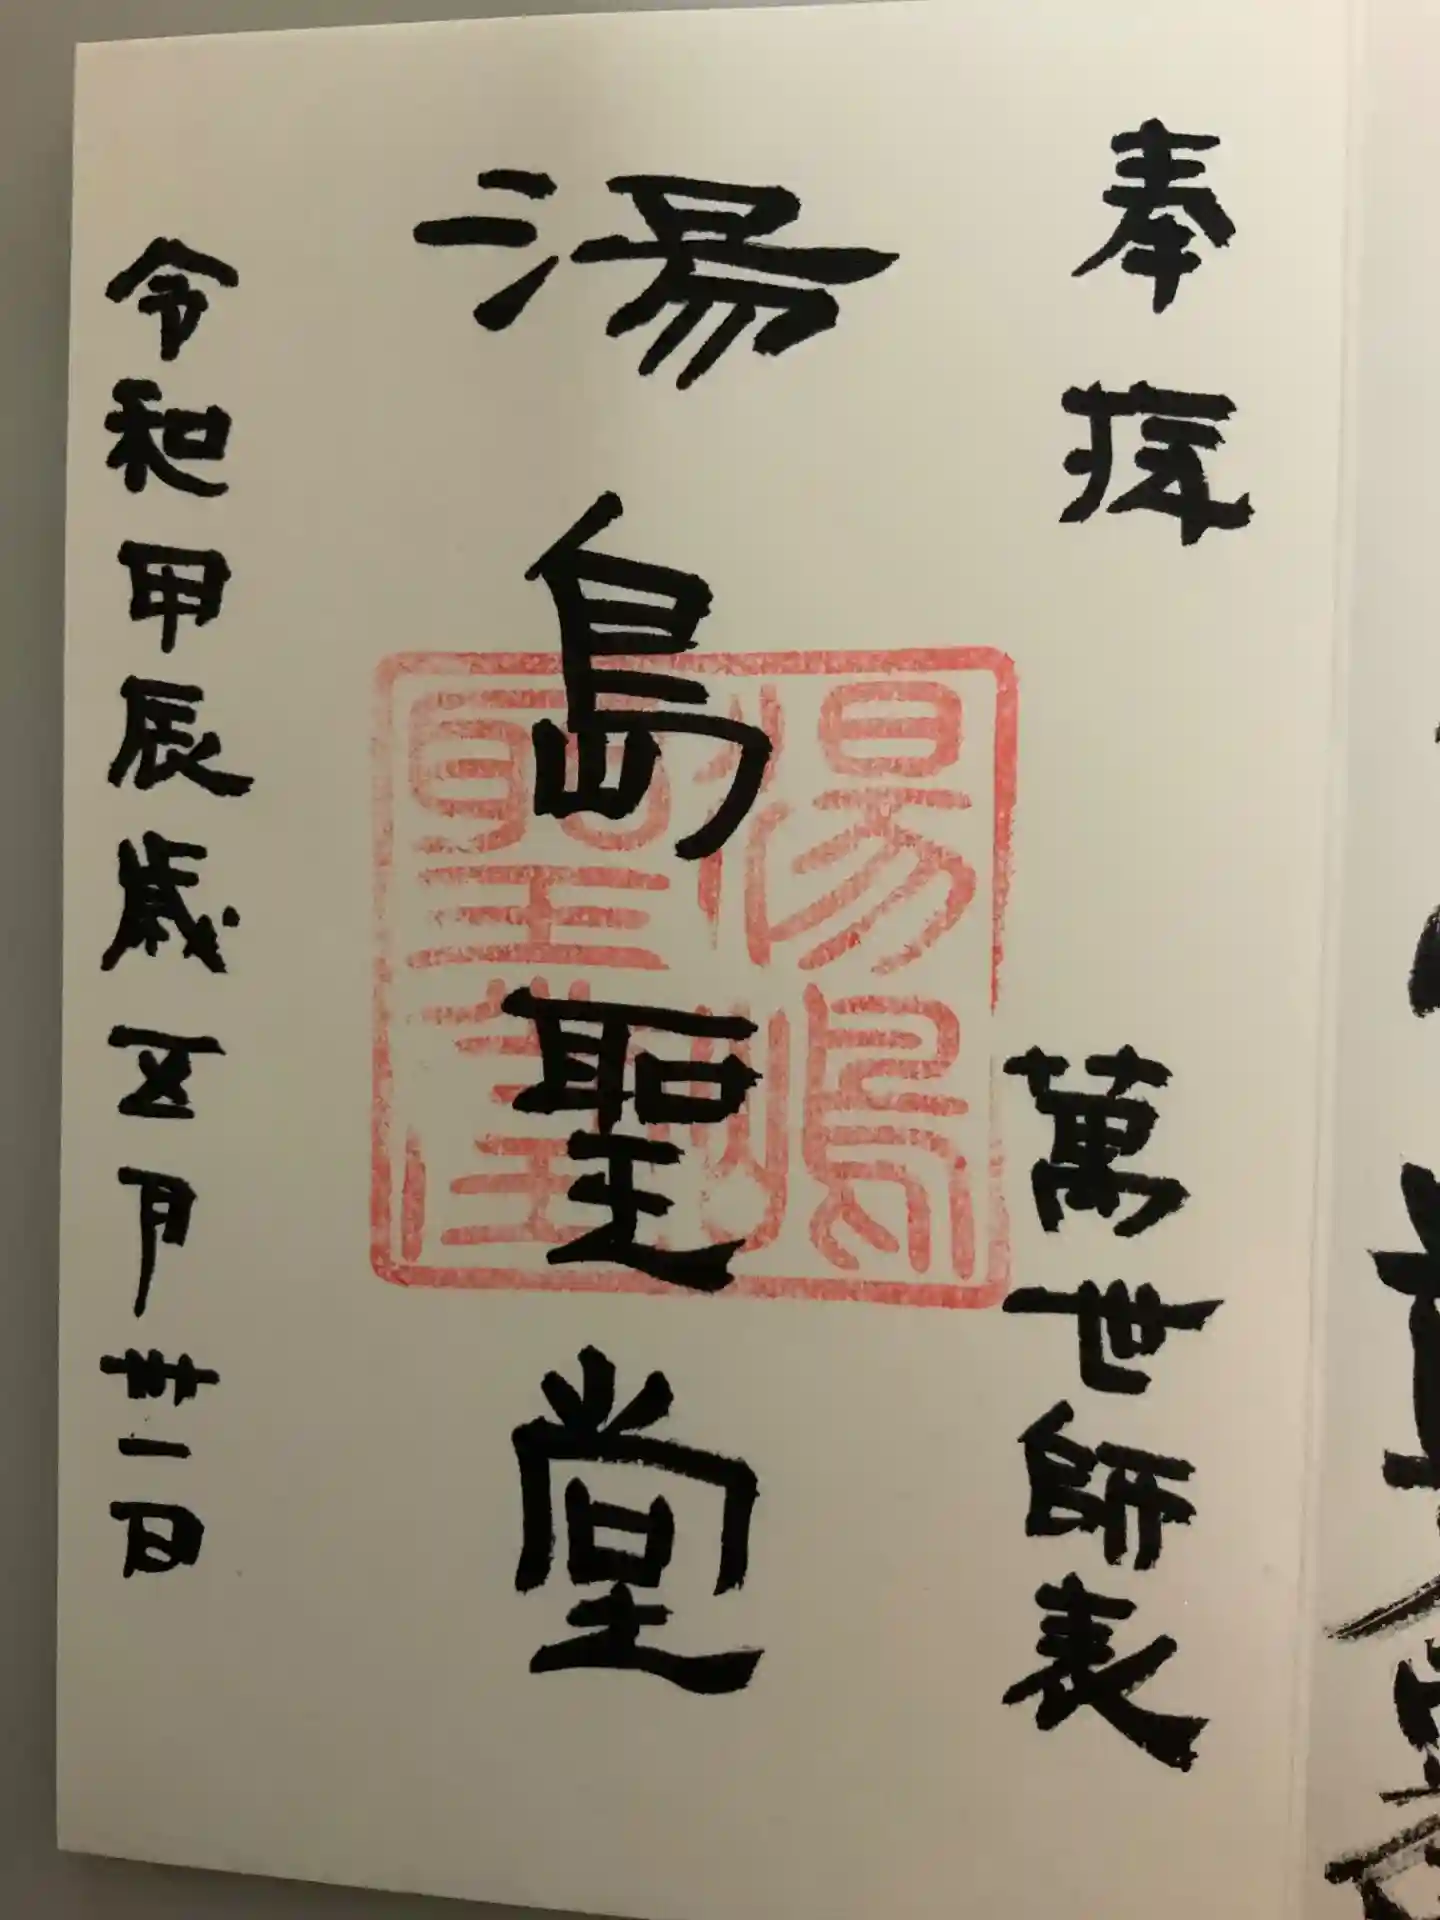 奉
萬世師表
湯島聖堂
湯嶋聖堂
令和甲辰歳五月卅一日